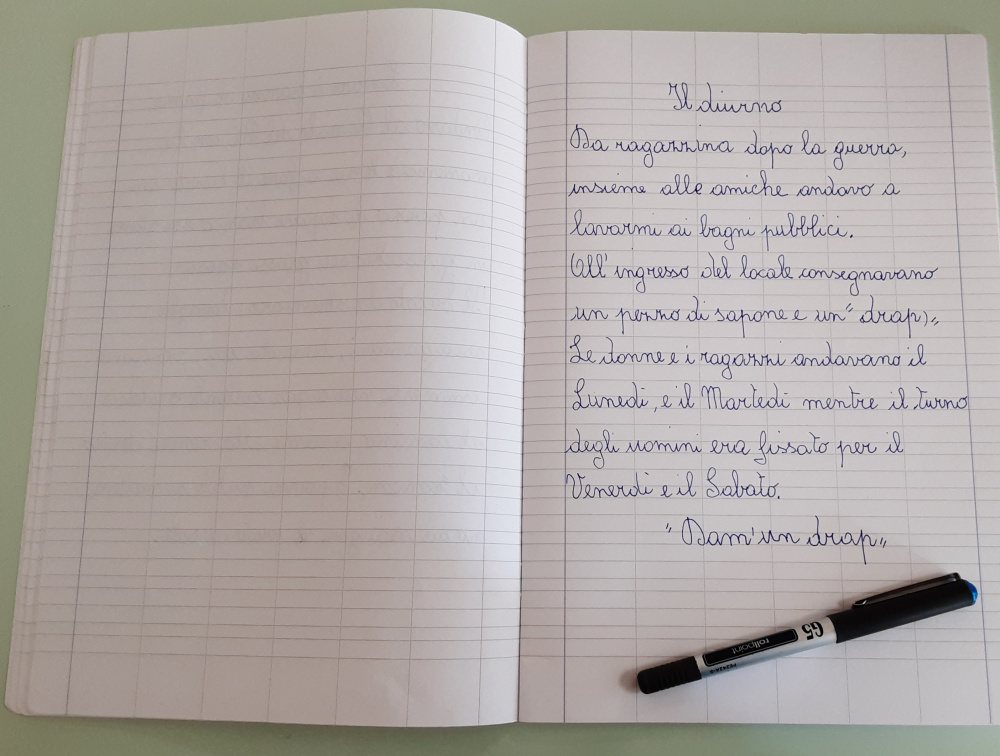 Il diurno
Da ragazzina dopo la guerra,
insieme alle amiche andavo a
lavarmi ai bagni pubblici.
All'ingresso del locale consegnavano
un pezzo di sapone e un "drap),,
Le donne e i ragazzi andavano il
Lunedi, e il Martedi mentre il turno
degli uomini era fissato per il
Venerdi e il Sabato.
"Dam'un drap,,
G5
rollpoint